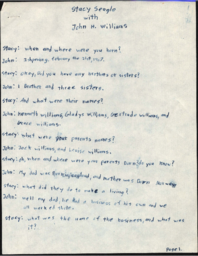 Stacy Seagle
with
John H. Williams
Stacy: when and where were you born?
John: Sidney, February the 21st,
Stacy: okay, did you have any brothers or sisters?
John: 1 Brother and three sisters.
Stacy: and what were their names?
John: Kenneth Williams, Gladys Williams, Gertrude Williams, and
Williams.
Stacy: what were your parents names?
John: Williams, and Williams.
Stacy: oh, when and where were your parents born do you
John: My dad was and mother was
Stacy: what did they do to make a living?
John: well my dad he had a business of his own and we
all worked there.
Stacy: what was the name of the business, and what was
it?
Page 1